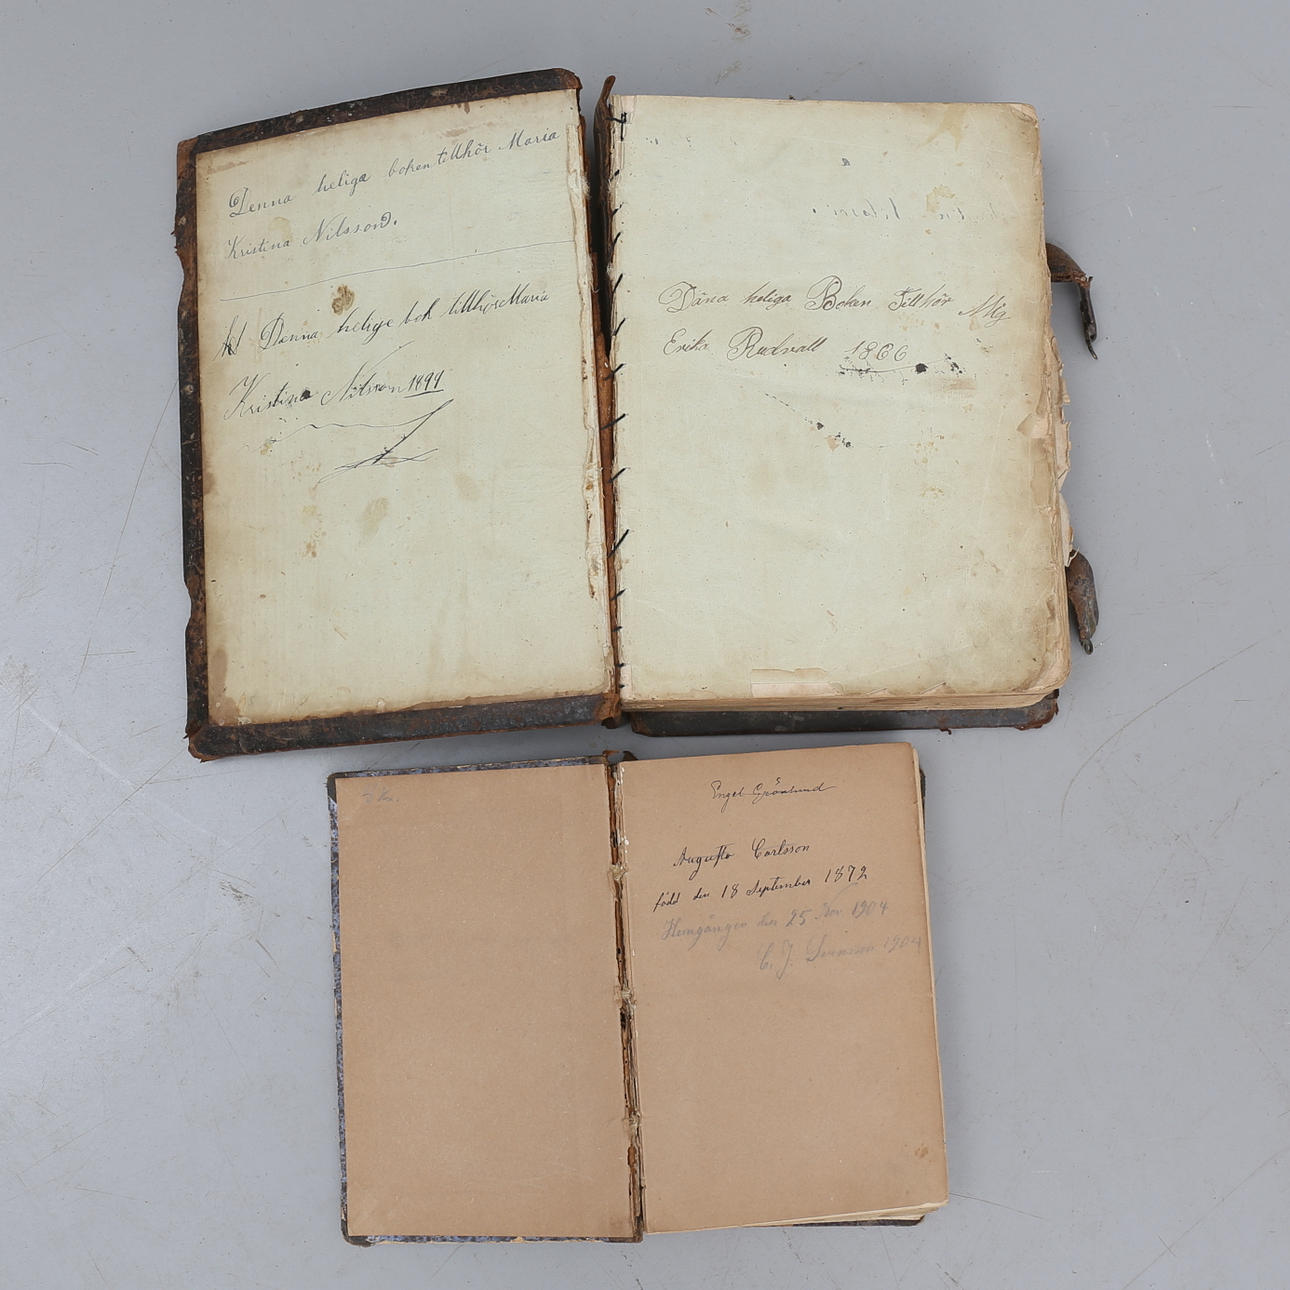 Denna heliga boken tillhör Maria
Kristina Nilsson.
Denna helige bok tillhör Maria
Kristina Nilsson 1894
Däna heliga Boken Tillhör Mig
Erika Rudvall 1866
Engel Grönlund
Augusta Carlsson
född den 18 September 1872
Hemgången den 25 Nov 1904
C. J. Svensson 1904